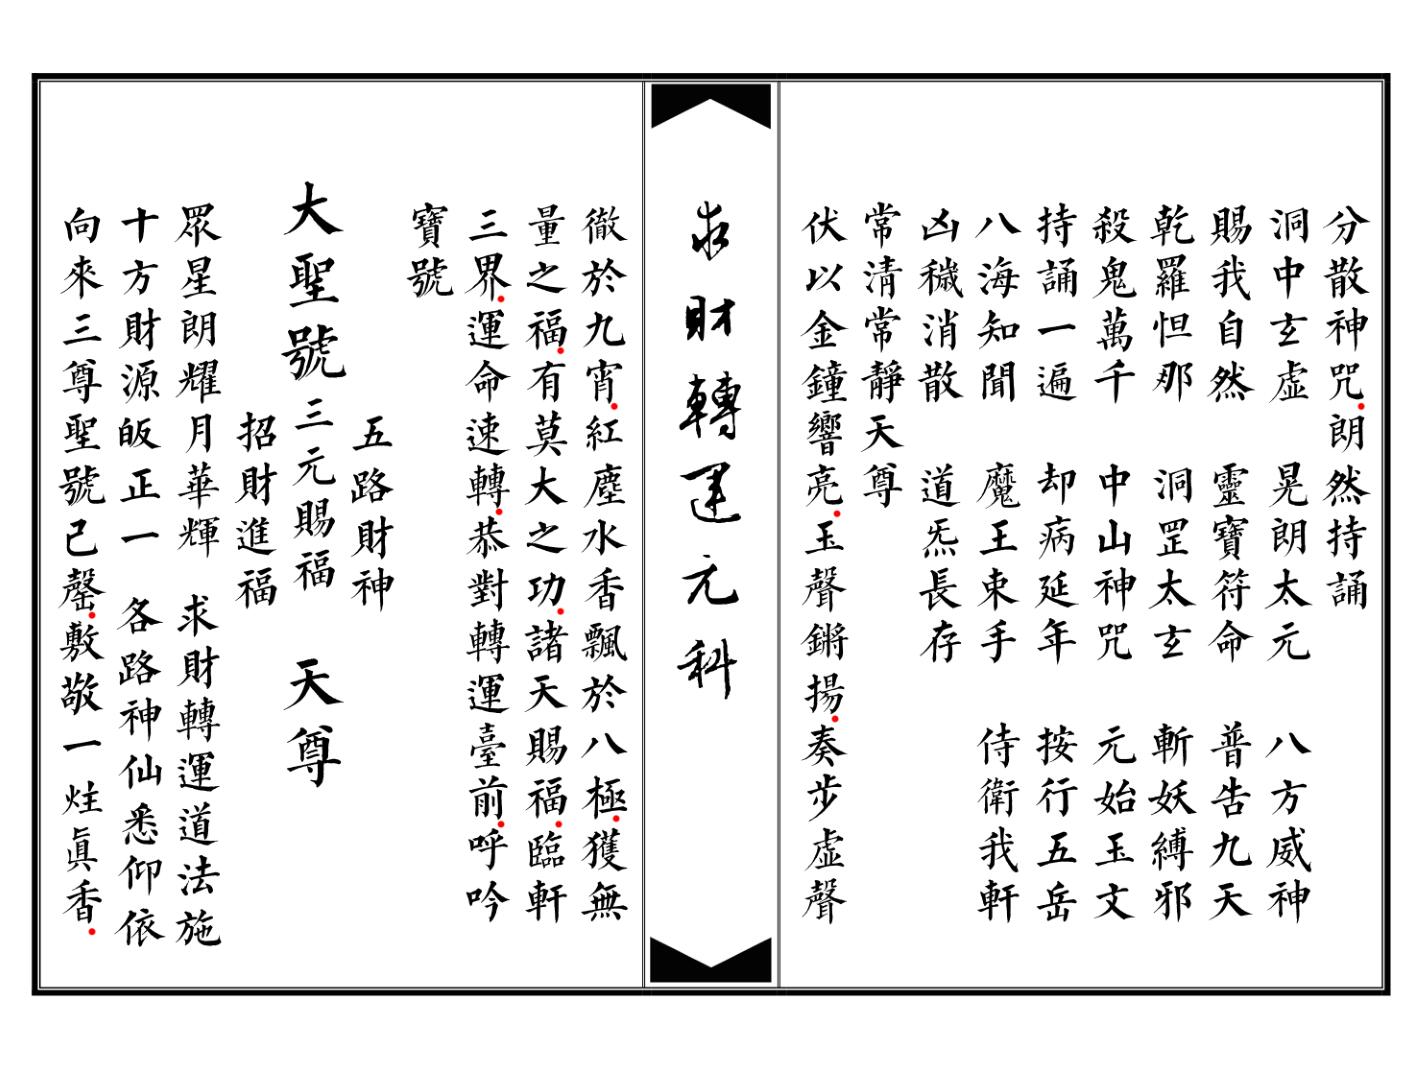 分散神咒朗然持誦
洞中玄虛 晃朗太元 八方威神
賜我自然 靈寶符命 普告九天
乾羅怛那 洞罡太玄 斬妖縛邪
殺鬼萬千 中山神咒 元始玉文
持誦一遍 却病延年 按行五岳
八海知聞 魔王束手 侍衛我軒
凶穢消散 道炁長存
常清常靜天尊
伏以金鐘響亮玉聲鏘揚奏步虛聲
求財轉運元科
徹於九宵紅塵水香飄於八極獲無
量之福有莫大之功諸天賜福臨軒
三界運命速轉恭對轉運臺前呼吟
寶號
五路財神
大聖號三元賜福 天尊
招財進福
眾星朗耀月華輝 求財轉運道法施
十方財源皈正一 各路神仙悉仰依
向來三尊聖號己罄敷敬一炷眞香